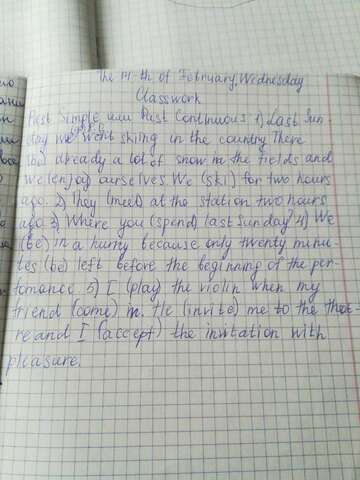 The 14-th of February, Wednesday
Classwork
Past Simple или Past Continuous 1) Last Sun
day we went skiing in the country There
(be) already a lot of snow in the fields and
we (enjoy ourselves We (ski) for two hours
ago. 2) They (meet) at the station two hours
ago 3) Where you (spend) last Sunday 4) We
(be) in a hurry because only twenty minu-
tes (be) left before the beginning of the per-
fomance 5) I (play) the violin when my
friend (come) in. He (invite) me to the theat-
re and I (accept) the invitation with
pleasure.